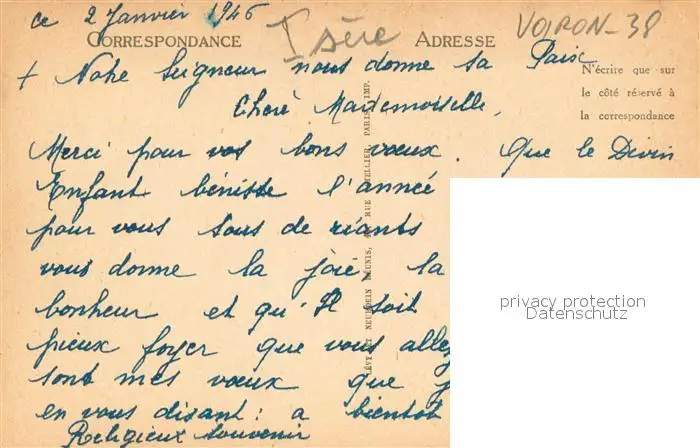 ce 2 Janvier 1946
Isère
VOIRON-38
CORRESPONDANCE
ADRESSE
+ Notre Seigneur nous donne sa Paix
N'écrire que sur
le côté réservé à
la correspondance
Chère Mademoiselle,
Merci pour vos bons vœux. Que le Divin
Enfant bénisse l'année
pour vous sous de riants
vous donne la joie, la
bonheur et qu'Il soit
pieux foyer que vous allez
sont mes vœux que j
en vous disant : a bientot
Religieux souvenir
LÉVY ET NEURDEIN RÉUNIS, RUE LETELLIER, PARIS IMP.
privacy protection
Datenschutz